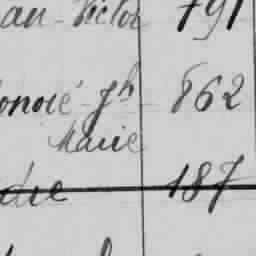 an-Victor 791
onoré-Jh 862
Marie
dre 187